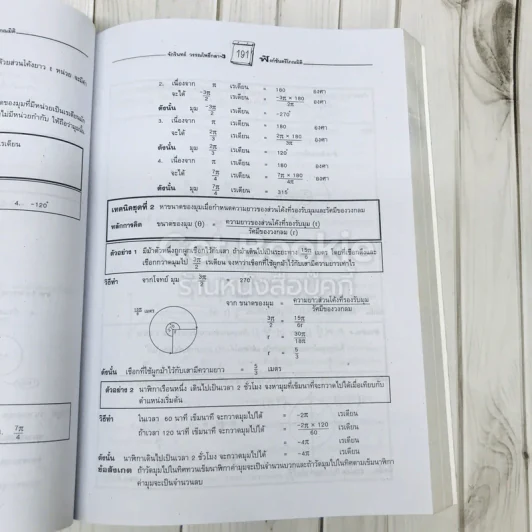 รักจินตน์ วรรณโพธิ์กลาง
191
ฟังก์ชันตรีโกณมิติ
2. เนื่องจาก π เรเดียน = 180 องศา
จะได้ -3π/2 เรเดียน = -3π × 180 / 2π องศา
ดังนั้น มุม -3π/2 เรเดียน = -270°
3. เนื่องจาก π เรเดียน = 180 องศา
จะได้ 2π/3 เรเดียน = 2π × 180 / 3π องศา
ดังนั้น มุม 2π/3 เรเดียน = 120°
4. เนื่องจาก π เรเดียน = 180 องศา
จะได้ 7π/4 เรเดียน = 7π × 180 / 4π องศา
ดังนั้น มุม 7π/4 เรเดียน = 315°
เทคนิคชุดที่ 2 หาขนาดของมุมเมื่อกำหนดความยาวของส่วนโค้งที่รองรับมุมและรัศมีของวงกลม
หลักการคิด ขนาดของมุม (θ) = ความยาวของส่วนโค้งที่รองรับมุม (r) / รัศมีของวงกลม (r)
ตัวอย่าง 1 มีม้าตัวหนึ่งถูกผูกเชือกไว้กับเสา ถ้าม้าเดินไปเป็นระยะทาง 15π/6 เมตร โดยที่เชือกตึงและ
เชือกกวาดมุมไป 3π/2 เรเดียน จงหาว่าเชือกที่ใช้ผูกม้าไว้กับเสามีความยาวเท่าไร
วิธีทำ จากโจทย์ มุม 3π/2 270°
จาก ขนาดของมุม = ความยาวส่วนโค้งที่รองรับมุม / รัศมีของวงกลม
3π/2 = 15π/6r
r = 30π/18π
r = 5/3
ดังนั้น เชือกที่ใช้ผูกม้าไว้กับเสามีความยาว = 5/3 เมตร
ตัวอย่าง 2 นาฬิกาเรือนหนึ่ง เดินไปเป็นเวลา 2 ชั่วโมง จงหามุมที่เข็มนาทีที่จะกวาดไปได้เมื่อเทียบกับ
ตำแหน่งเริ่มต้น
วิธีทำ ในเวลา 60 นาที เข็มนาที จะกวาดมุมไปได้ = -2π เรเดียน
ถ้าเวลา 120 นาที เข็มนาที จะกวาดมุมไปได้ = -2π × 120 / 60 เรเดียน
= -4π เรเดียน
ดังนั้น นาฬิกาเดินไปเป็นเวลา 2 ชั่วโมง จะกวาดมุมไปได้ = -4π เรเดียน
ข้อสังเกต ถ้าวัดมุมไปในทิศทวนเข็มนาฬิกาค่ามุมจะเป็นจำนวนบวกและถ้าวัดมุมไปในทิศตามเข็มนาฬิกา
ค่ามุมจะเป็นจำนวนลบ
ร้านหนังสือมือ
4. -120°
7. 7π/4